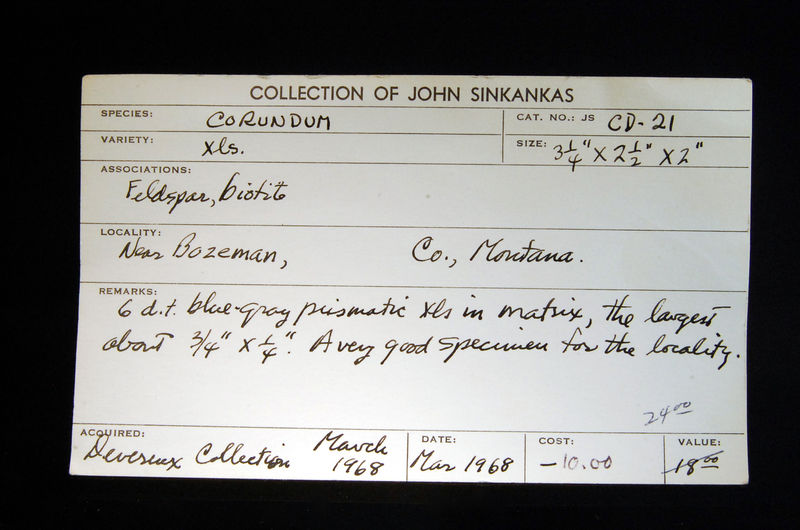 COLLECTION OF JOHN SINKANKAS
SPECIES: CORUNDUM
CAT. NO.: JS CD-21
VARIETY: xls.
SIZE: 3 1/4" X 2 1/2" X 2"
ASSOCIATIONS:
Feldspar, biotite
LOCALITY:
Near Bozeman, Co., Montana.
REMARKS:
6 d.t. blue-gray prismatic xls in matrix, the largest
about 3/4" X 1/4". A very good specimen for the locality.
24.00
ACQUIRED: Devereux Collection March 1968
DATE: Mar 1968
COST: -10.00
VALUE: 18.00